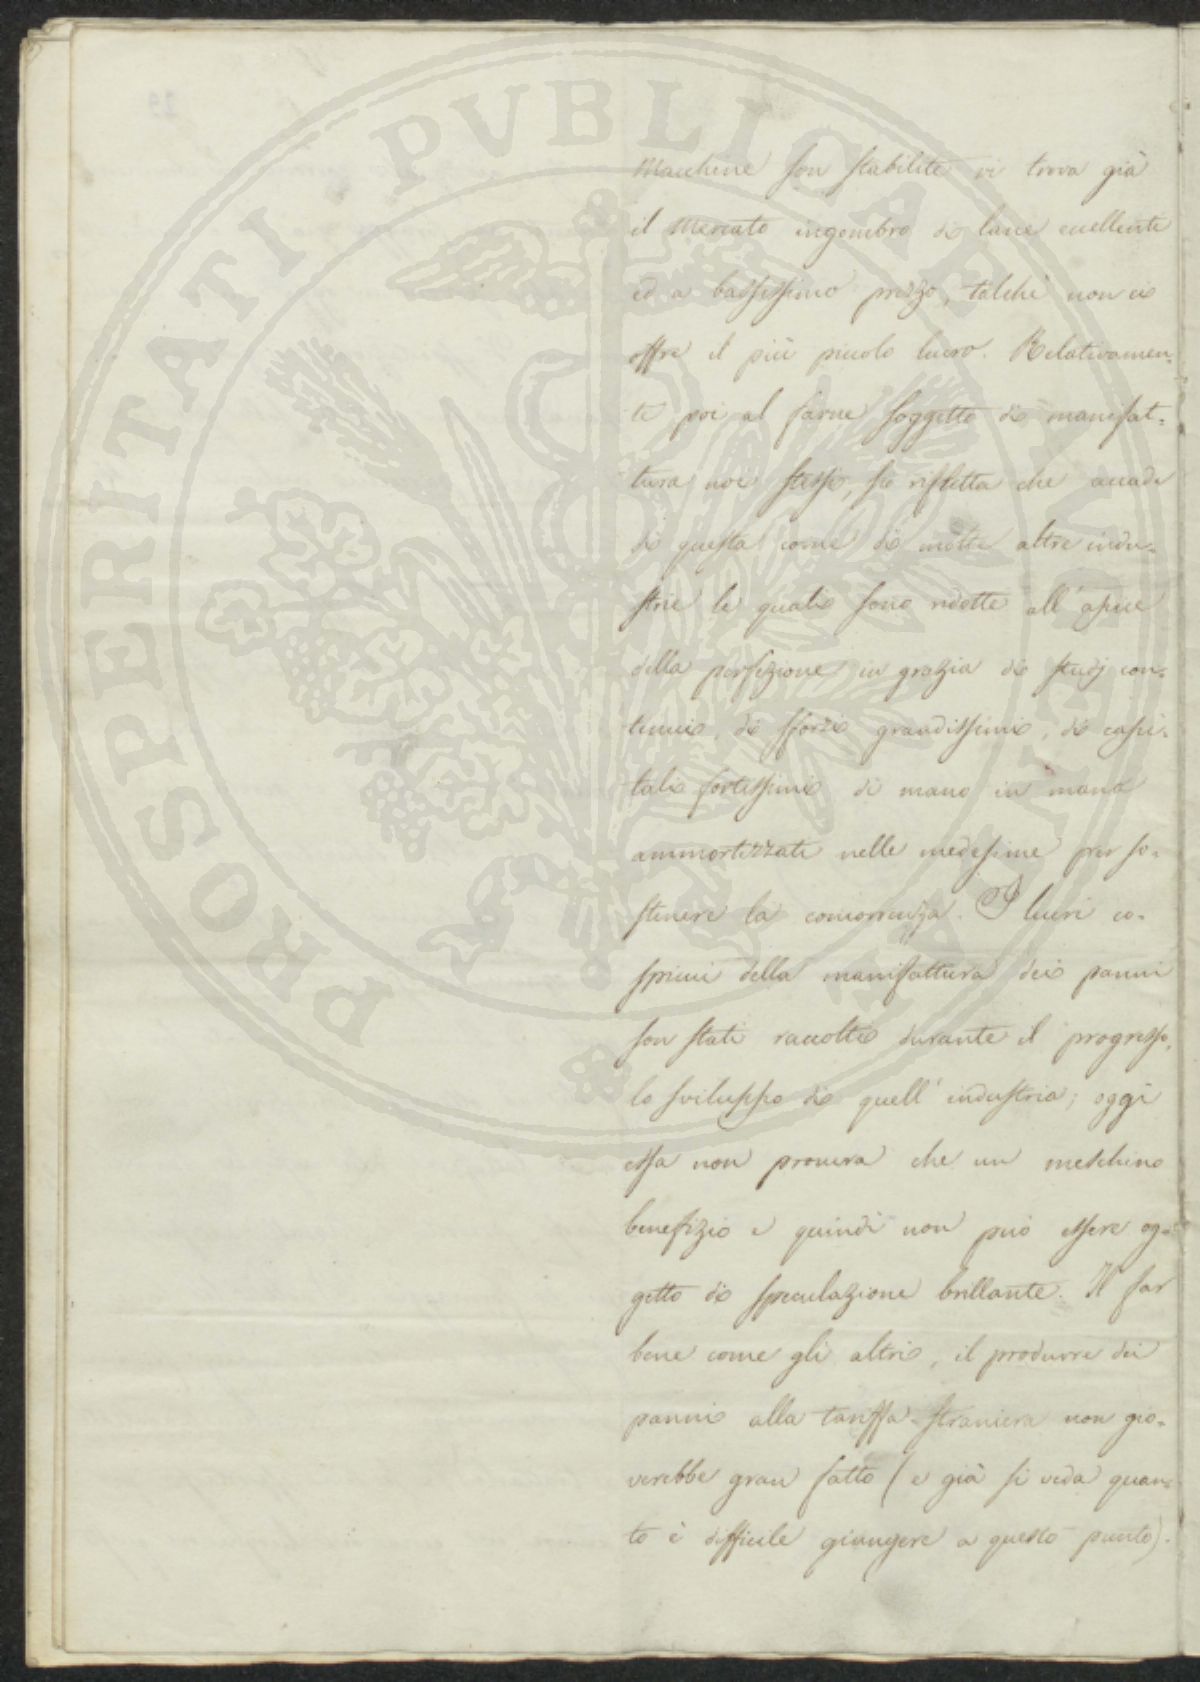 PROSPERITATI PVBLICAE AVGENDAE
Macchine son stabilite vi trova già
il Mercato ingombro di lane eccellenti
ed a bassissimo prezzo, talchè non ci
offre il più piccolo lucro. Relativamen=
te poi al farne soggetto di manifat=
tura noi stessi, si rifletta che accade
di questa come di molte altre indu=
strie le quali sono ridotte all'apice
della perfezione in grazia di studj con=
tinui, di sforzi grandissimi, di capi=
tali fortissimi di mano in mano
ammortizzati nelle medesime per so=
stenere la concorrenza. I lucri co=
spicui della manifattura dei panni
son stati raccolti durante il progresso,
lo sviluppo di quell'industria; oggi
essa non procura che un meschino
benefizio e quindi non può essere og=
getto di speculazione brillante. Il far
bene come gli altri, il produrre dei
panni alla tariffa straniera non gio=
verebbe gran fatto (e già si veda quan=
to è difficile giungere a questo punto).